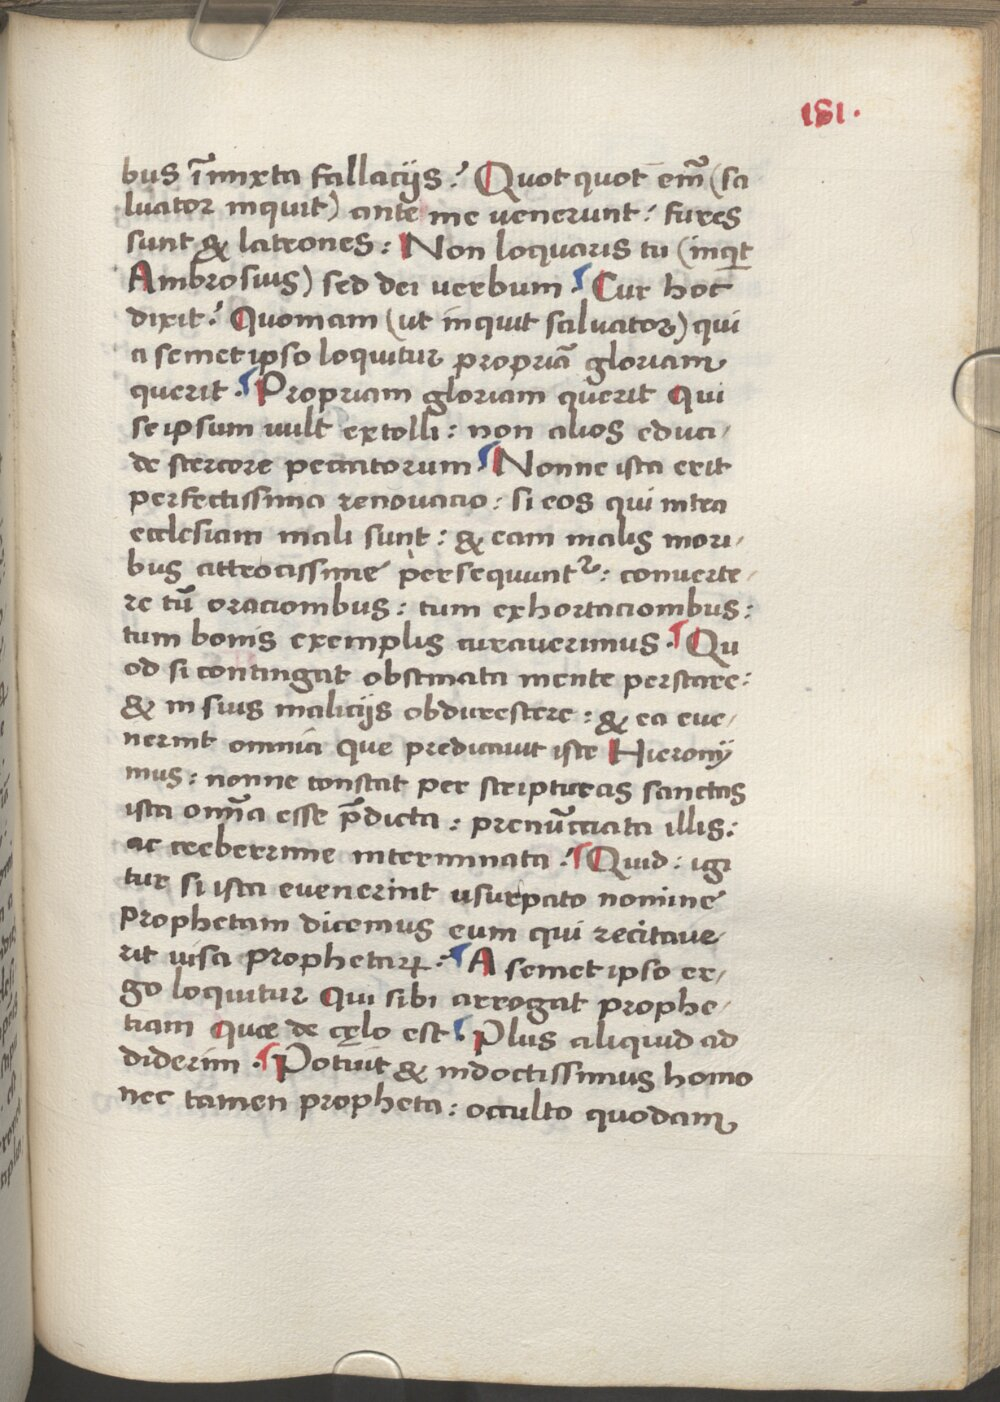 181.
bus im̄ixta fallacijs? Quot quot em̄ (sa
luator inquit) ante me venerunt: fures
sunt & latrones: Non loquaris tu (inqt
Ambrosius) sed dei uerbum. Cur hoc
dixit? Quoniam (ut inquit saluator) qui
a semet ipso loquitur propriā gloriam
querit. Propriam gloriam querit Qui
se ipsum uult extolli: non alios educi
de stercore peccatorum Nonne ista erit
perfectissima renouacio: si eos qui intra
ecclesiam mali sunt: & eam malis mori,
bus attrocissime persequunt: conuerte,
re tū oracionibus: tum exhortacionibus:
tum bonis exemplis curauerimus. Qu
od si contingat obstinata mente perstare:
& in suis malicijs obdurescere: & ea eue,
nerint omnia que predicauit iste Hierony
mus: nonne constat per scripturas sanctas
ista om̄a esse p̄dicta: prenūcciata illis:
ac creberrime interminata? Quid: igi
tur si ista euenerint usurpato nomine
prophetam dicemus eum qui recitaue,
rit uisa prophetaꝝ: A semet ipso er,
go loquitur Qui sibi arrogat prophe,
tiam Quæ de cęlo est. Plus aliquid ad
diderim. Potuit & indoctissimus homo
nec tamen propheta: occulto quodam